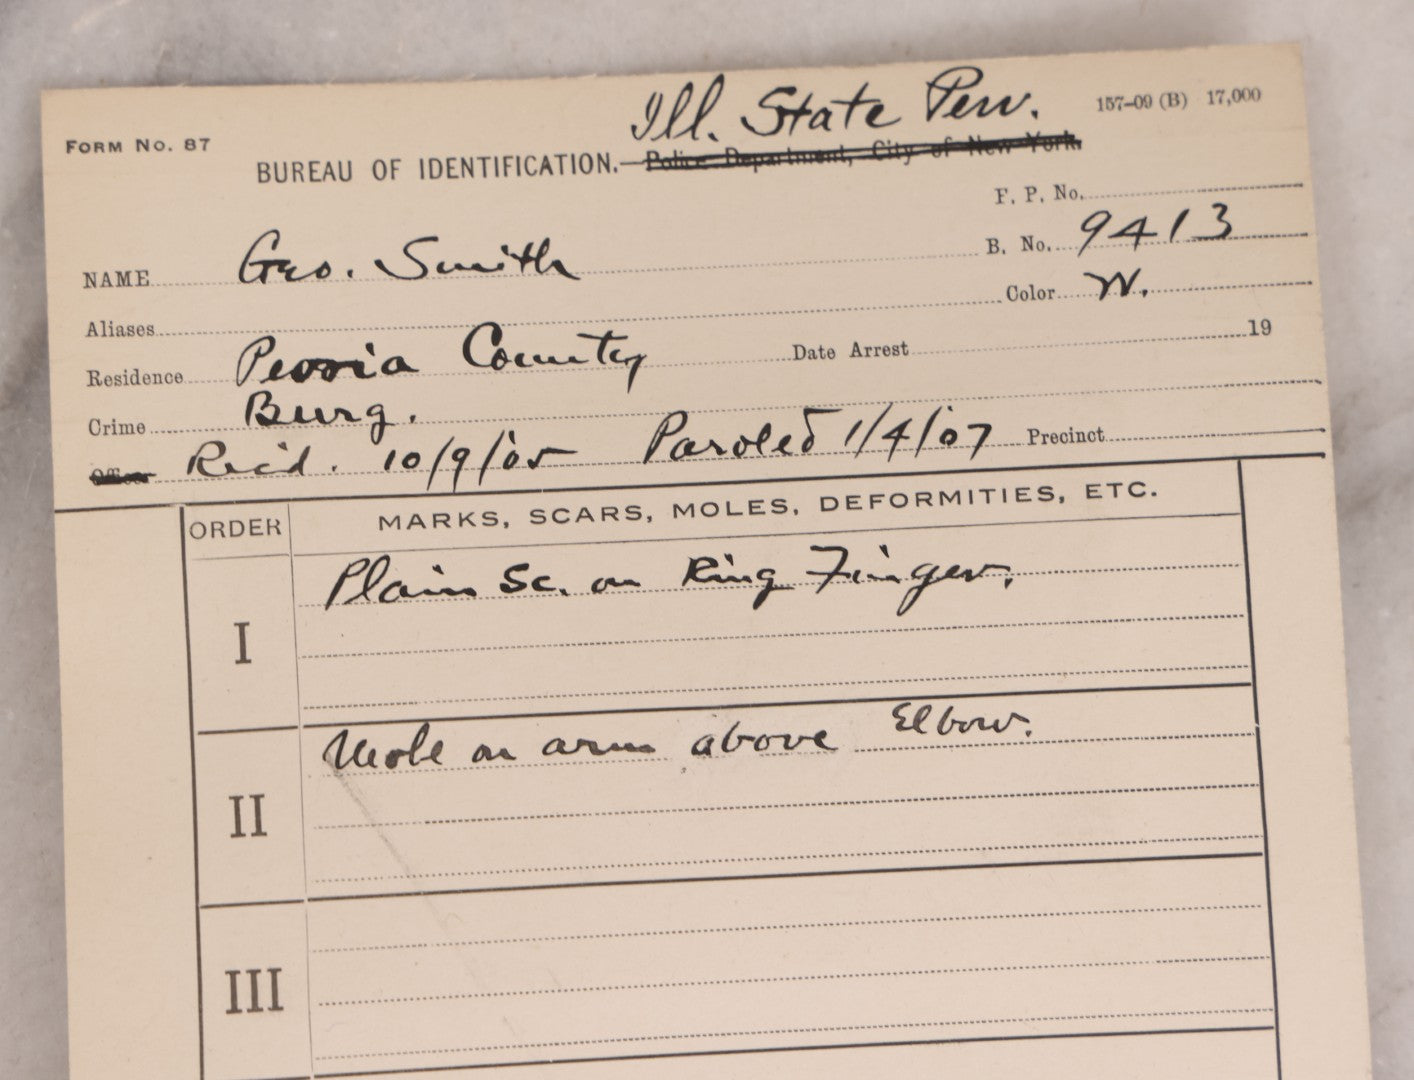 Ill. State Pen.
157-09 (B) 17,000
FORM NO. 87
BUREAU OF IDENTIFICATION.—Police Department, City of New York.
F. P. No.
NAME Geo. Smith B. No. 9413
Aliases Color W.
Residence Peoria County Date Arrest 19
Crime Burg.
Officer Rec'd. 10/9/'05 Paroled 1/4/'07 Precinct
ORDER MARKS, SCARS, MOLES, DEFORMITIES, ETC.
Plain Sc. on Ring Finger.
I
Mole on arm above Elbow.
II
III